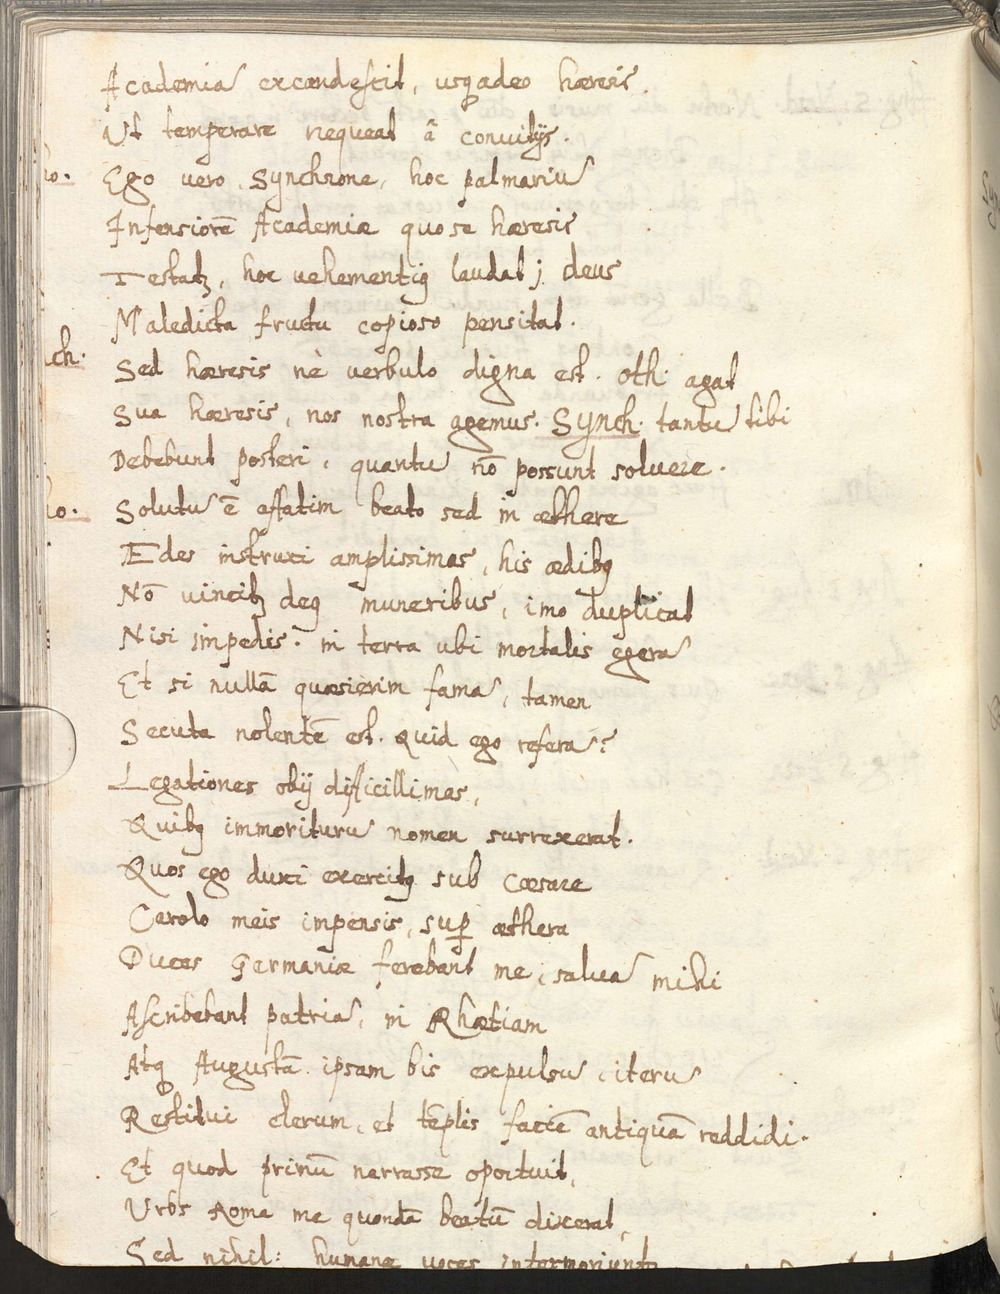 Academia excandescit, usqadeo hæresis
Ut temperare nequeat â convitijs.
Ego vero, Synchrone, hoc palmariū
Infensiorē Academiæ quo se hæresis
Testatꝶ, hoc vehementiꝰ laudat; deus
Maledicta fructu copioso pensitat.
Sed hæresis nè verbulo digna est. Oth. agat
Sua hæresis, nos nostra agemus. Synch. tantū tibi
Debebunt posteri, quantū nō possunt solvere.
Solutū ē affatim beato sed in æthere
Edes instruxi amplissimas, his ædibꝰ
Nō vincitꝶ deꝰ muneribus, imo duplicat
Nisi impedis. in terra ubi mortalis egerā
Et si nullā quæsierim famā, tamen
Secuta nolentē est. Quid ego referā?
Legationes obij difficillimas,
Quibꝰ immorituro nomen surrexerat.
Quos ego duxi exercitꝰ sub Cæsare
Carolo meis impensis, suꝑ æthera
Duces Germaniæ ferebant me, salvā mihi
Ascribebant patriā, in Rhætiam
Atqꝫ Augustā ipsam bis expulsū, iterū
Restitui clerum, et tēplis faciē antiquā reddidi.
Et quod primū narrasse oportuit,
Urbs Roma me quondā beatū dixerat,
Sed nihil: humanæ voces intermoriuntꝶ
ho.
ch.
ho.